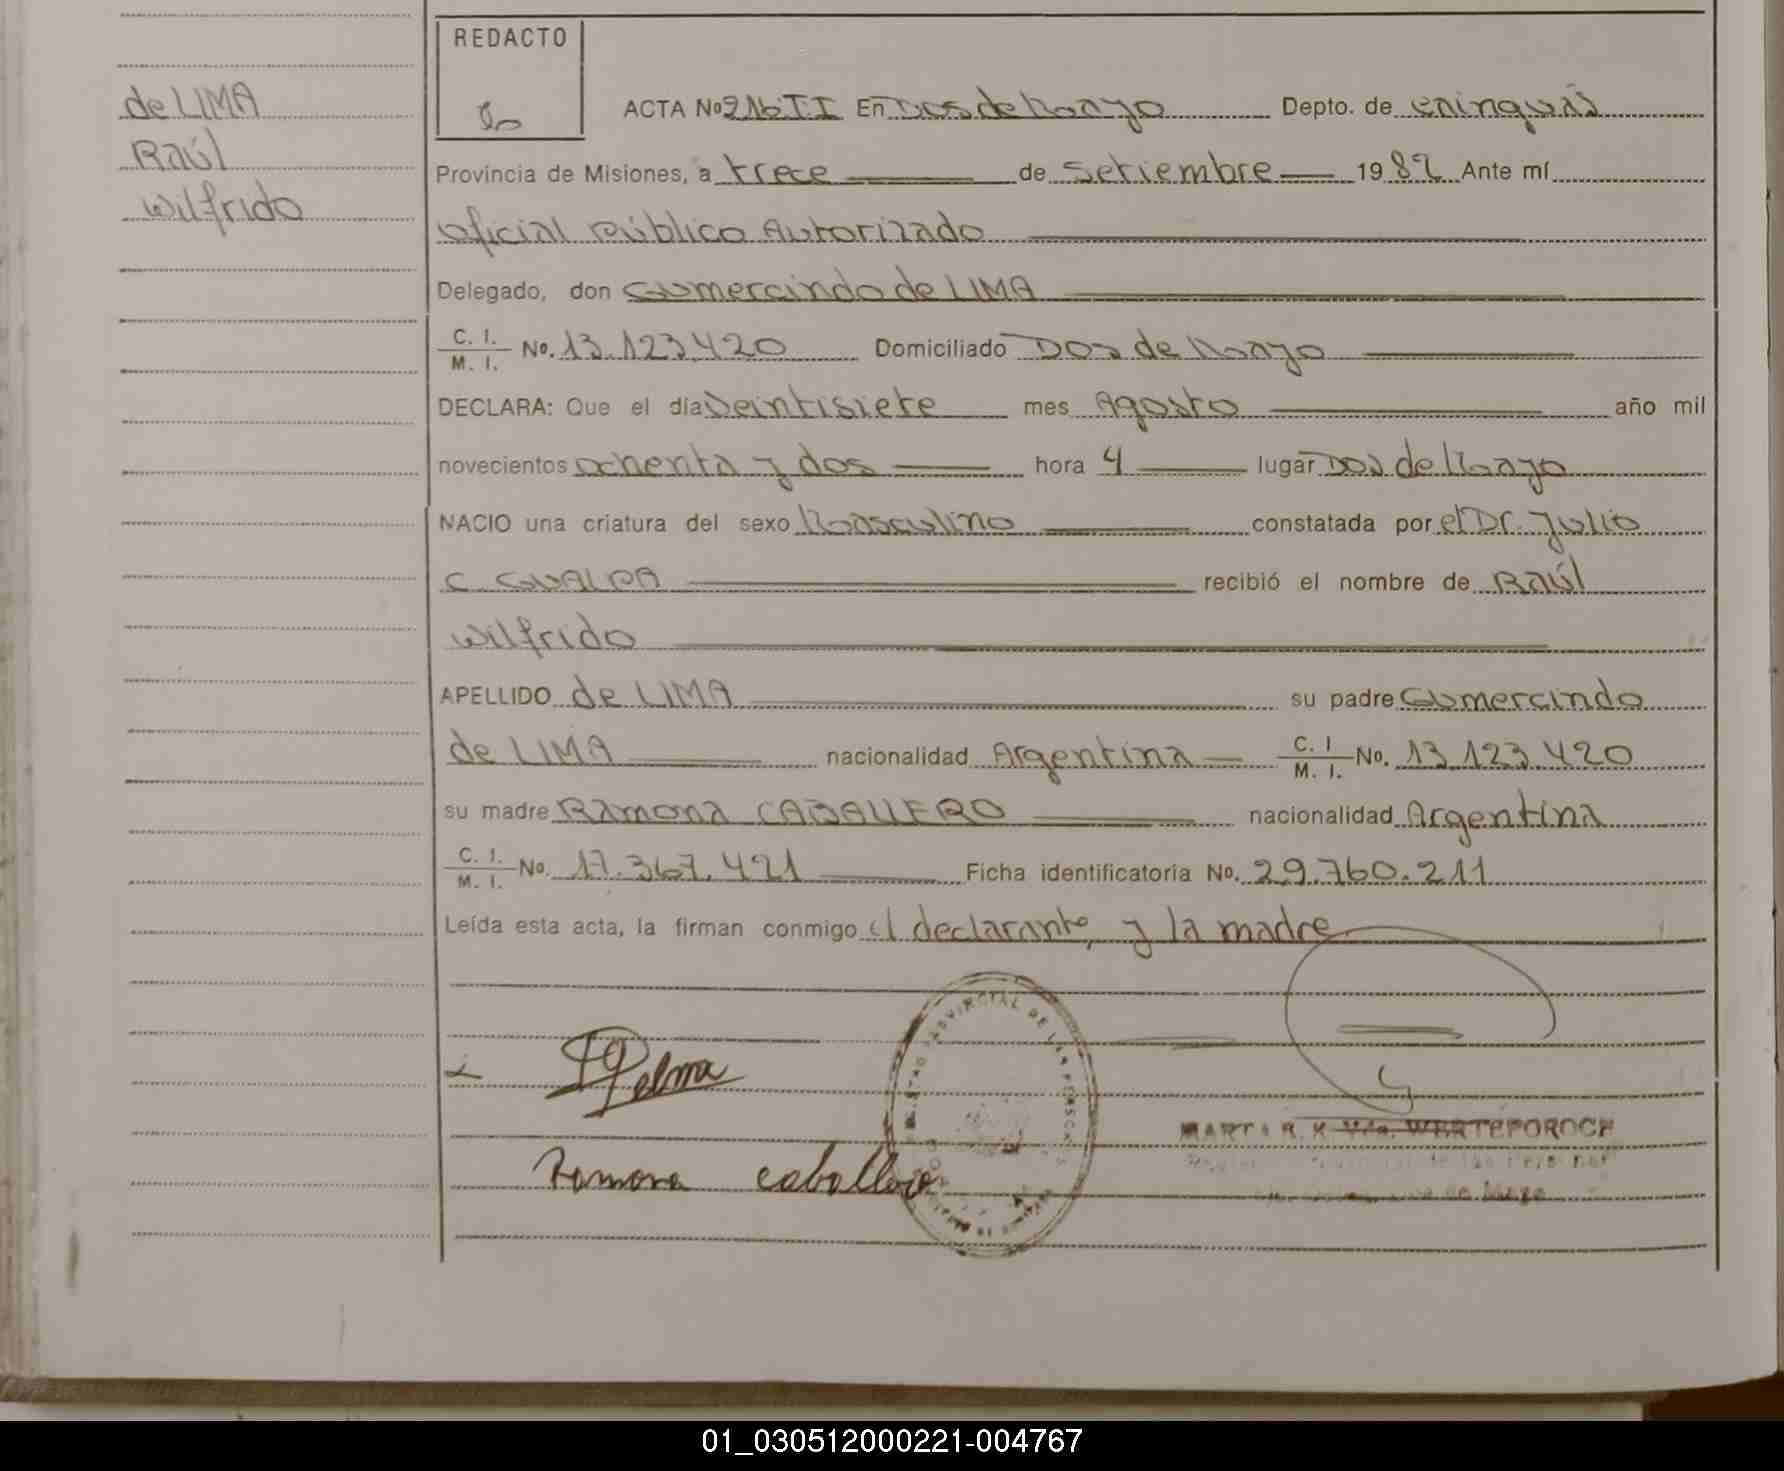 de LIMA
Raúl
Wilfrido
REDACTO
ACTA No 216 TI En Dos de Mayo Depto. de
Provincia de Misiones, a trece de Setiembre 1982 Ante mí
Oficial Público Autorizado
Delegado, don Gumercindo de LIMA
C. I. M. I. No. 13.123.420 Domiciliado Dos de Mayo
DECLARA: Que el día Veintisiete mes Agosto año mil
novecientos ochenta y dos hora 4 lugar Dos de Mayo
NACIO una criatura del sexo Masculino constatada por el Dr. Julio
C. GUALPA recibió el nombre de Raúl
Wilfrido
APELLIDO de LIMA su padre Gumercindo
de LIMA nacionalidad Argentina C. I M. I. No. 13.123.420
su madre Ramona CABALLERO nacionalidad Argentina
C. I. M. I. No. 17.367.421 Ficha identificatoria No. 29.760.211
Leída esta acta, la firman conmigo el declarante, y la madre
PROVINCIAL DE LAS PERSONAS
MARTA R. K. Vda. WERTEPOROCH
Ramona caballero
de Mayo
01_030512000221-004767